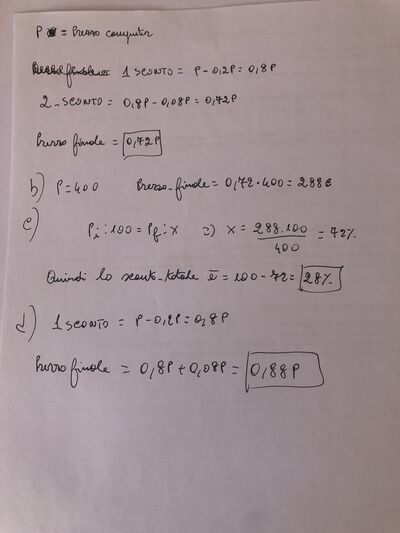 P = Prezzo computer
1 SCONTO = P-0,2P=0,8P
2-SCONTO = 0,8P-0,08P=0,72P
Prezzo finale = 0,72P
b) P=400 Prezzo-finale=0,72·400=288€
c) Pi:100=Pf:x => x = 288·100/400 = 72%
Quindi lo sconto-totale è = 100-72= 28%
d) 1 SCONTO = P-0,2P=0,8P
Prezzo finale = 0,8P+0,08P= 0,88P